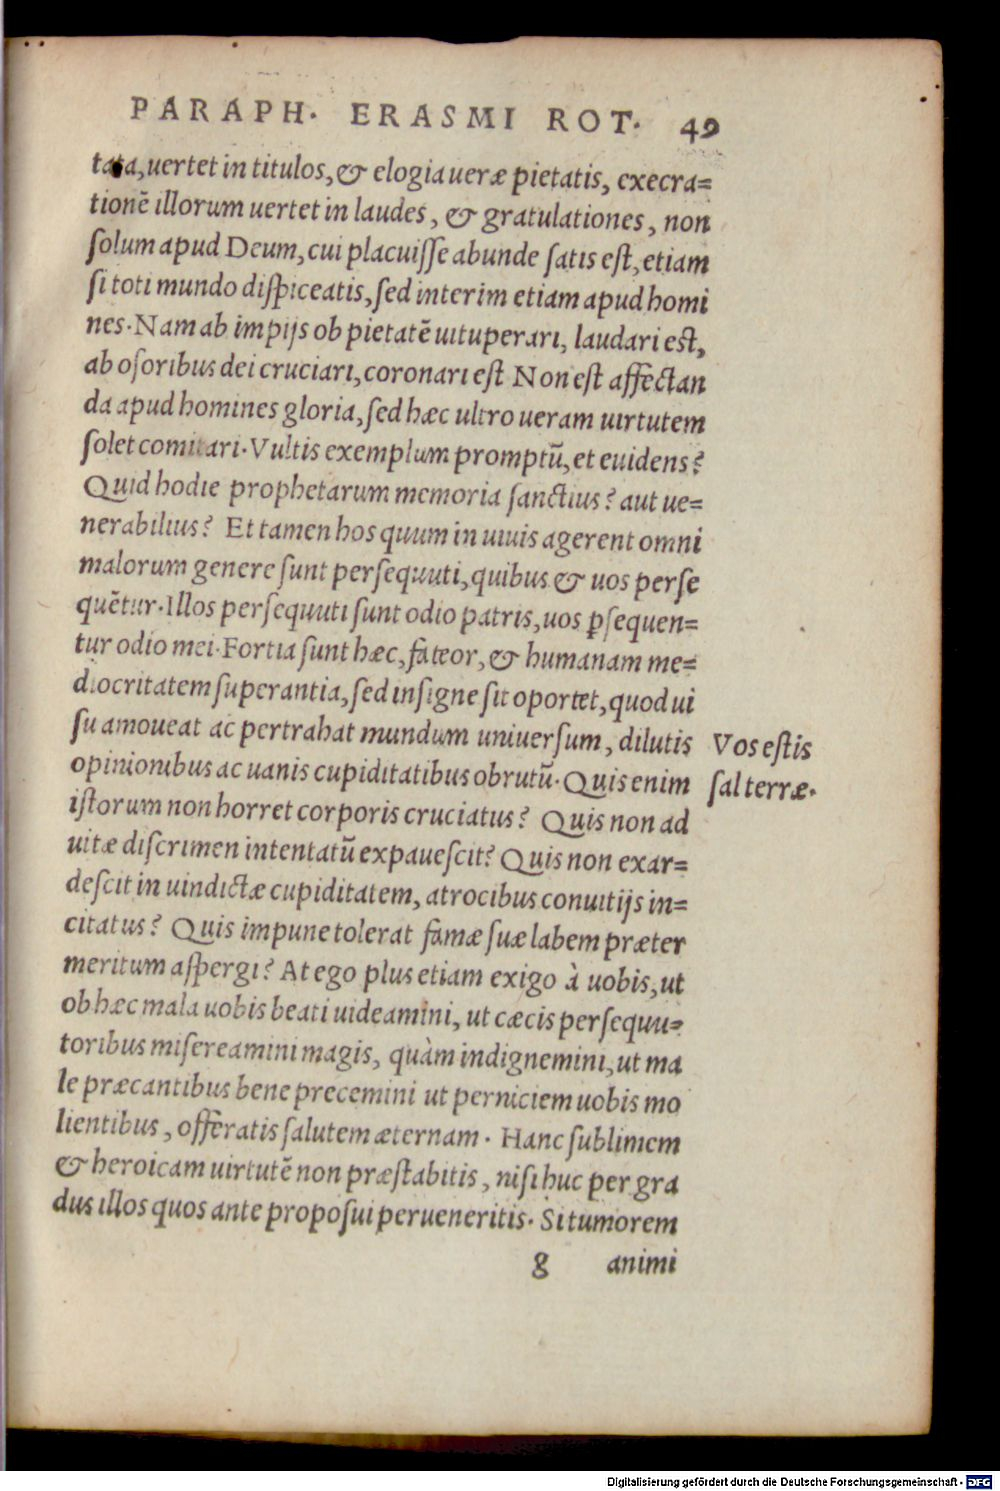 PARAPH. ERASMI ROT. 49
tata, uertet in titulos, & elogia ueræ pietatis, execra=
tionẽ illorum uertet in laudes, & gratulationes, non
ſolum apud Deum, cui placuiſſe abunde ſatis eſt, etiam
ſi toti mundo diſpiceatis, ſed interim etiam apud homi
nes. Nam ab impijs ob pietatẽ uituperari, laudari est,
ab oſoribus dei cruciari, coronari eſt Non eſt affectan
da apud homines gloria, ſed hæc ultro ueram uirtutem
ſolet comitari. Vultis exemplum promptũ, et euidens?
Quid hodie prophetarum memoria ſanctius? aut ue=
nerabilius? Et tamen hos quum in uiuis agerent omni
malorum genere ſunt perſequuti, quibus & uos perſe
quẽtur. Illos perſequuti ſunt odio patris, uos ꝑſequen=
tur odio mei. Fortia ſunt hæc, fateor, & humanam me=
diocritatem ſuperantia, ſed inſigne ſit oportet, quod ui
ſu amoueat ac pertrahat mundum uniuerſum, dilutis
opinionibus ac uanis cupiditatibus obrutũ. Quis enim
iſtorum non horret corporis cruciatus? Quis non ad
uitæ diſcrimen intentatũ expaueſcit? Quis non exar=
deſcit in uindictæ cupiditatem, atrocibus conuitijs in=
citatus? Quis impune tolerat famæ ſuæ labem præter
meritum aſpergi? At ego plus etiam exigo à uobis, ut
ob hæc mala uobis beati uideamini, ut cæcis perſequu=
toribus miſereamini magis, quàm indignemini, ut ma
le præcantibus bene precemini ut perniciem uobis mo
lientibus, offeratis ſalutem æternam. Hanc ſublimem
& heroicam uirtutẽ non præſtabitis, niſi huc per gra
dus illos quos ante propoſui perueneritis. Si tumorem
g animi
Vos eſtis
ſal terræ.
Digitalisierung gefördert durch die Deutsche Forschungsgemeinschaft - DFG